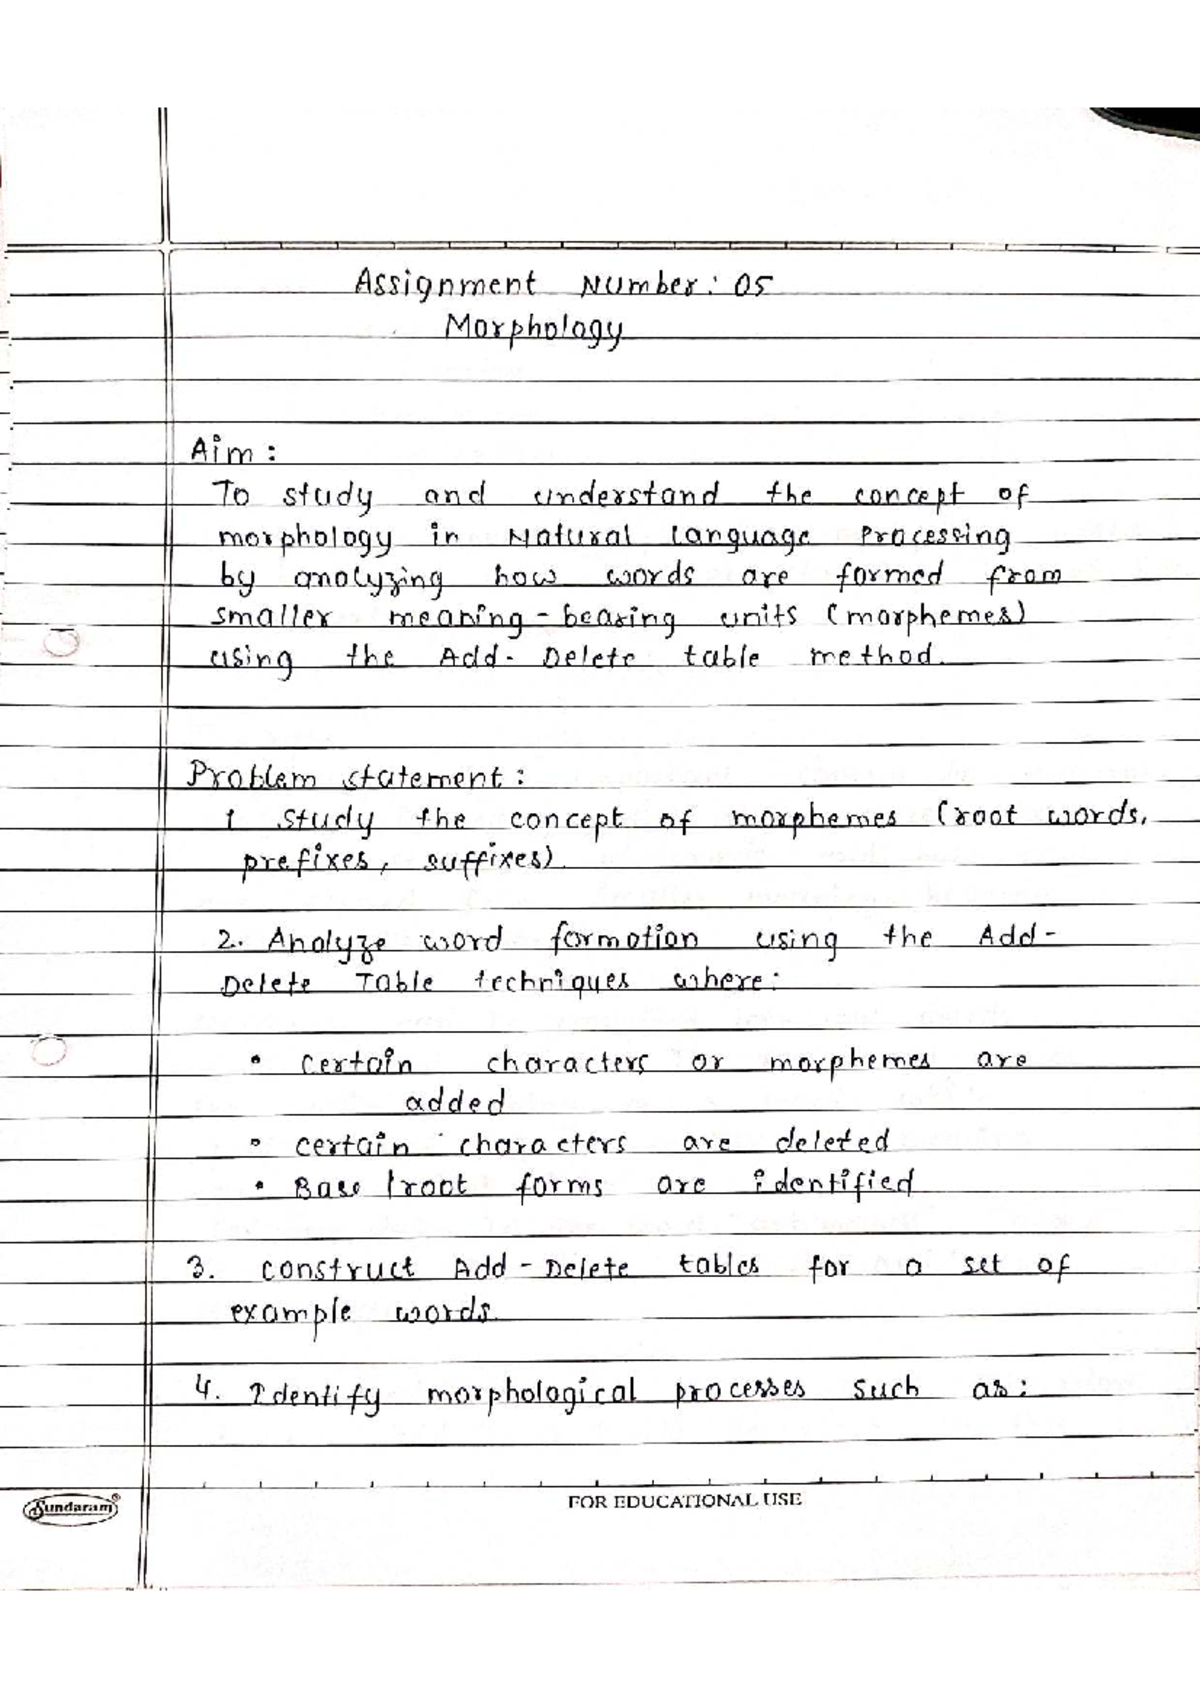 Assignment Number: 05
Morphology
Aim :
To study and understand the concept of
morphology in Natural Language Processing
by analyzing how words are formed from
smaller meaning-bearing units (morphemes)
using the Add-Delete table method.
Problem statement :
1 Study the concept of morphemes (root words,
prefixes, suffixes).
2. Analyze word formation using the Add-
Delete Table techniques where:
• certain characters or morphemes are
added
• certain characters are deleted
• Base /root forms are identified
3. construct Add-Delete tables for a set of
example words.
4. Identify morphological processes such as:
Sundaram®
FOR EDUCATIONAL USE